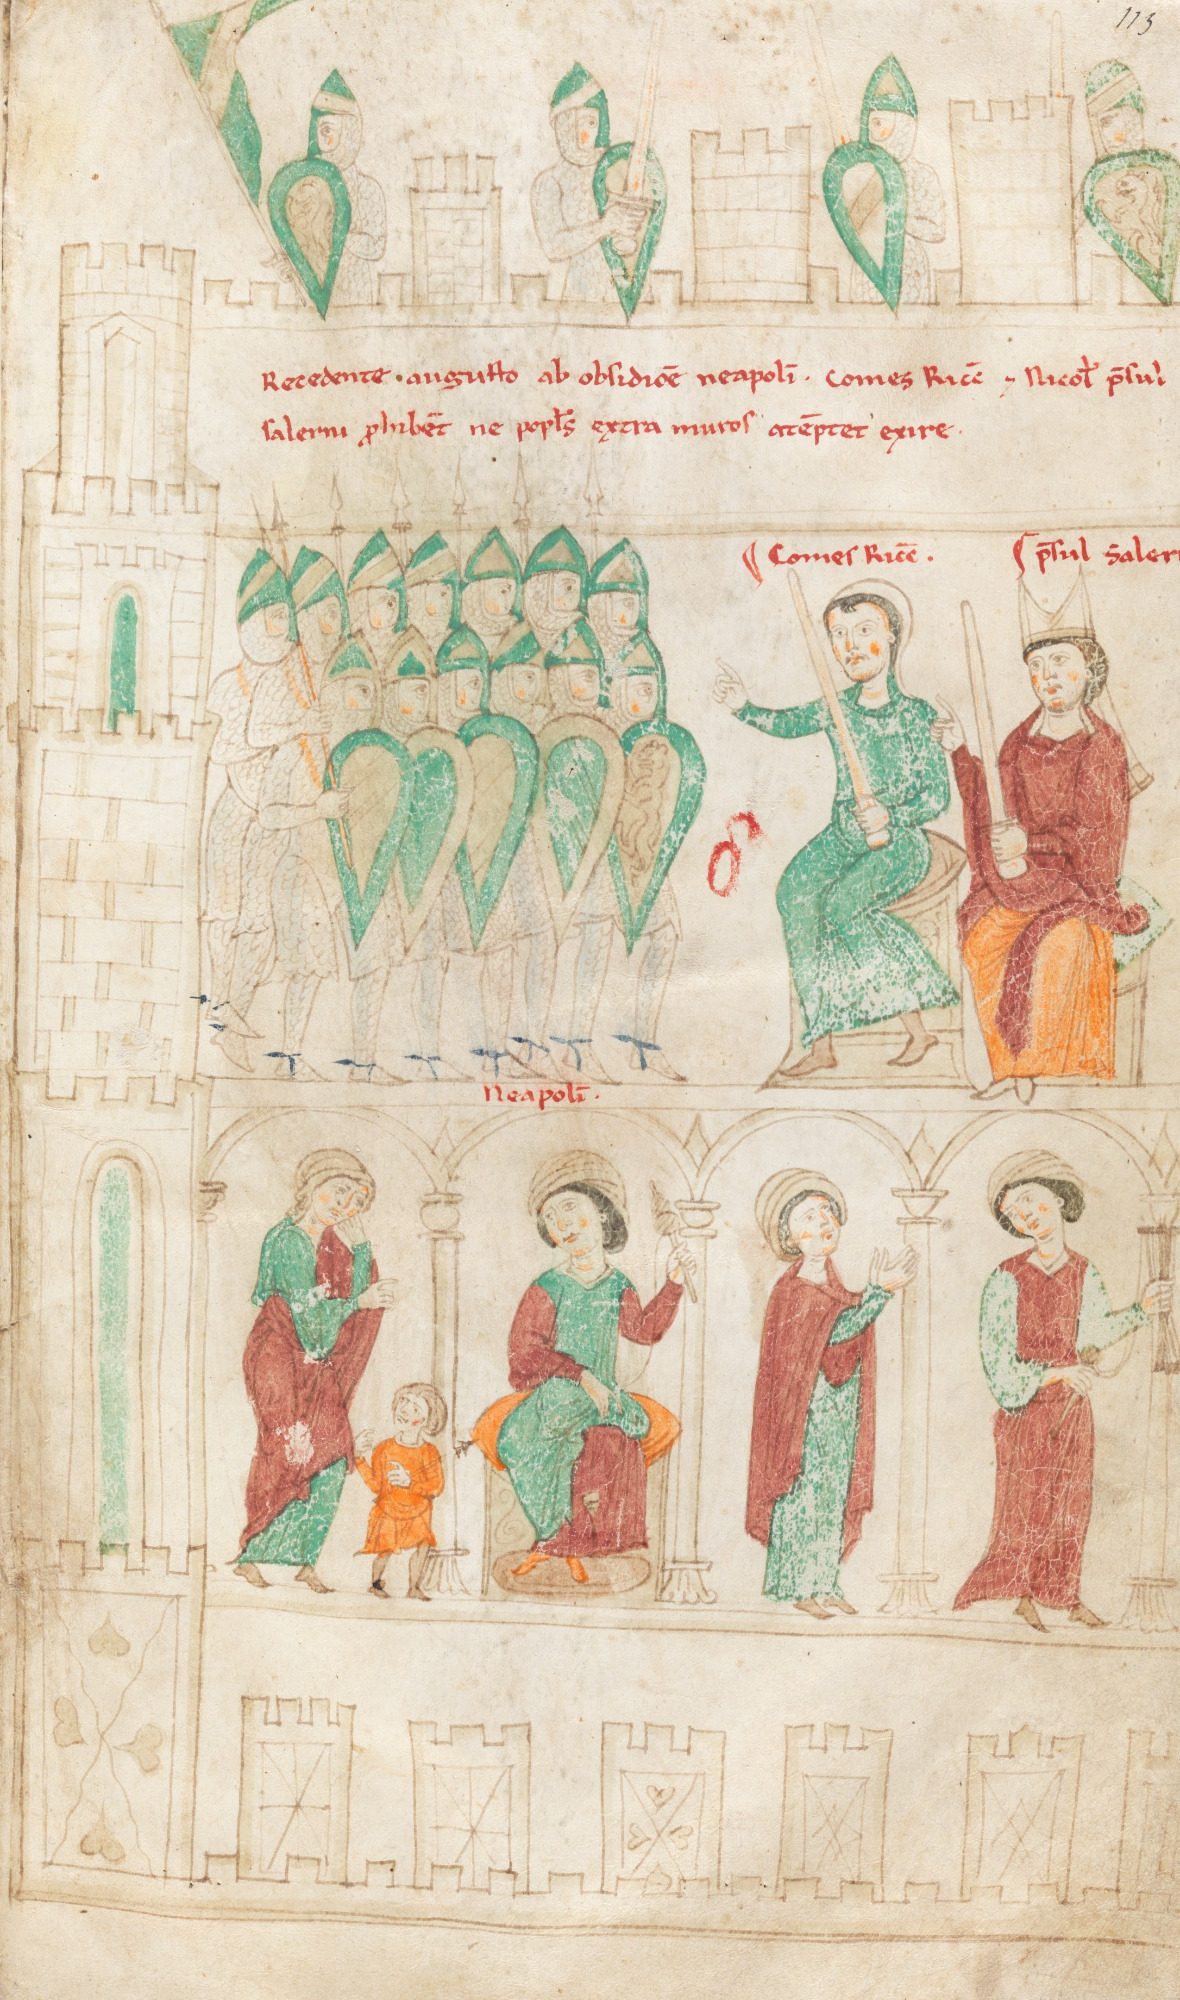 113
Recedente . augusto ab obsidiōē neapolī . Comes Ricc̄ ⁊ Nicol̄ p̄sul
salerni ꝓhibēt ne popl̄s extra muros atēptet exire .
Comes Ricc̄ .
p̄sul Saler
Neapolī .